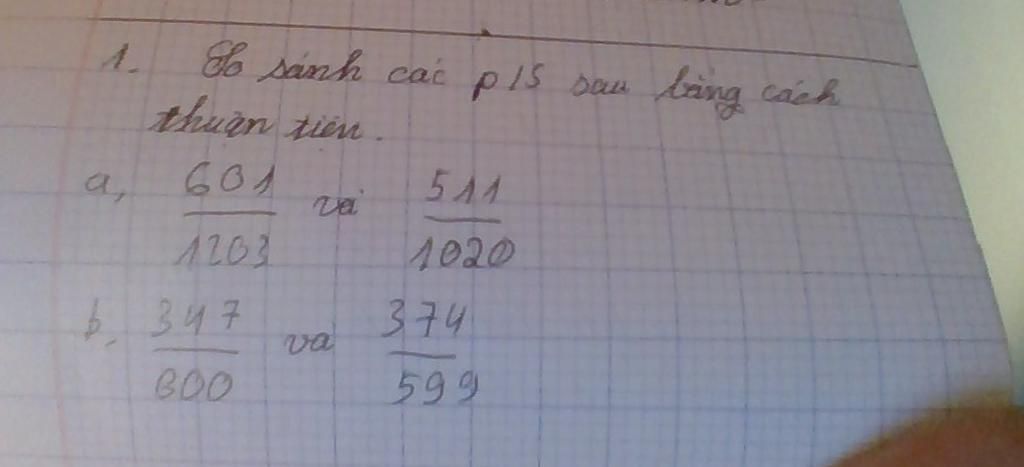 1. So sánh các p/S sau bằng cách
thuận tiện.
a, 601/1203 và 511/1020
b, 347/600 và 374/599